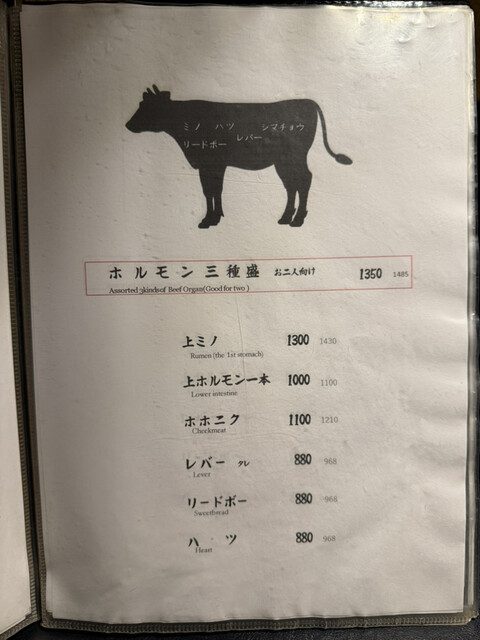 ミノ ハツ シマチョウ
リードボー レバー
ホルモン三種盛 お二人向け 1350 1485
Assorted 3kinds of Beef Organ(Good for two )
上ミノ 1300 1430
Rumen (the 1st stomach)
上ホルモン一本 1000 1100
Lower intestine
ホホニク 1100 1210
Cheekmeat
レバー タレ 880 968
Lever
リードボー 880 968
Sweetbread
ハツ 880 968
Heart